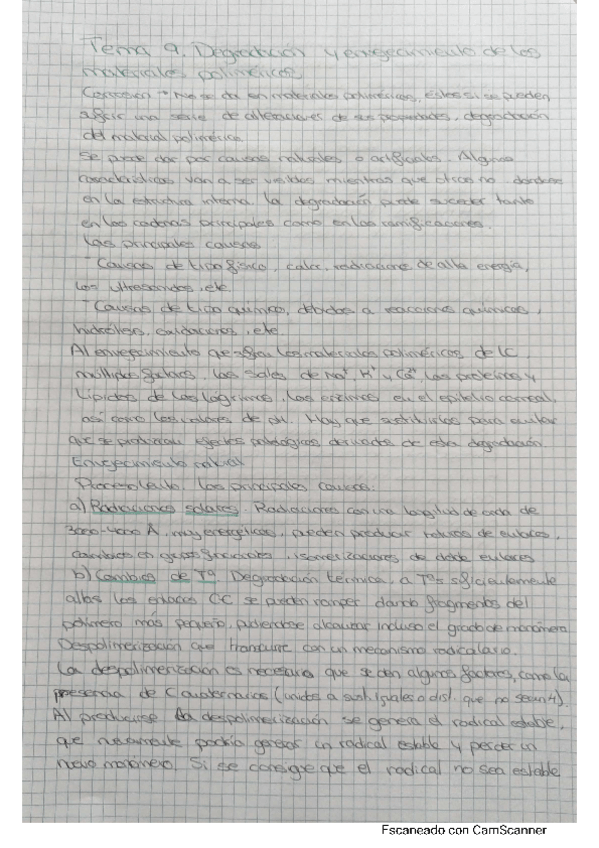 Tema 9. Degradación y envejecimiento de los
materiales poliméricos
Corrosión → No se da en materiales poliméricos, éstos si se pueden
sufrir una serie de alteraciones de sus propiedades, degradación
del material polimérico.
Se puede dar por causas naturales o artificiales. Algunas
características van a ser visibles mientras que otras no dándose
en la estructura interna. La degradación puede suceder tanto
en las cadenas principales como en las ramificaciones.
Las principales causas
- Causas de tipo físico, calor, radiaciones de alta energía,
los ultrasonidos, etc
- Causas de tipo químico, debidas a reacciones químicas,
hidrólisis, oxidaciones, etc.
Al envejecimiento que sufren los materiales poliméricos de LC
múltiples factores, las sales de Na⁺, K⁺ y Ca²⁺, las proteínas y
Lípidos de las lágrimas, las en el epitelio corneal,
así como los valores de pH. Hay que sustituirlas para evitar
que se produzcan efectos patológicos derivados de esta degradación.
Envejecimiento natural
Proceso lento. Las principales causas:
a) Radiaciones solares. Radiaciones con una longitud de onda de
3000-4000 Å, muy energéticas, pueden producir roturas de enlaces,
cambios en grupos funcionales, isomerizaciones de doble enlaces
b) Cambios de Tª. Degradación térmica, a Tªs suficientemente
altas los enlaces CC se pueden romper dando fragmentos del
polímero más pequeño, pudiéndose alcanzar incluso el grado de monómero
Despolimerización que transcurre con un mecanismo radicalario.
La despolimerización es necesario que se den algunos factores, como la
presencia de C cuaternarios (unidos a sust. iguales o dist. que no sean H).
Al producirse la despolimerización se genera el radical estable,
que nuevamente podría generar un radical estable y perder un
nuevo monómero. Si se consigue que el radical no sea estable
Escaneado con CamScanner